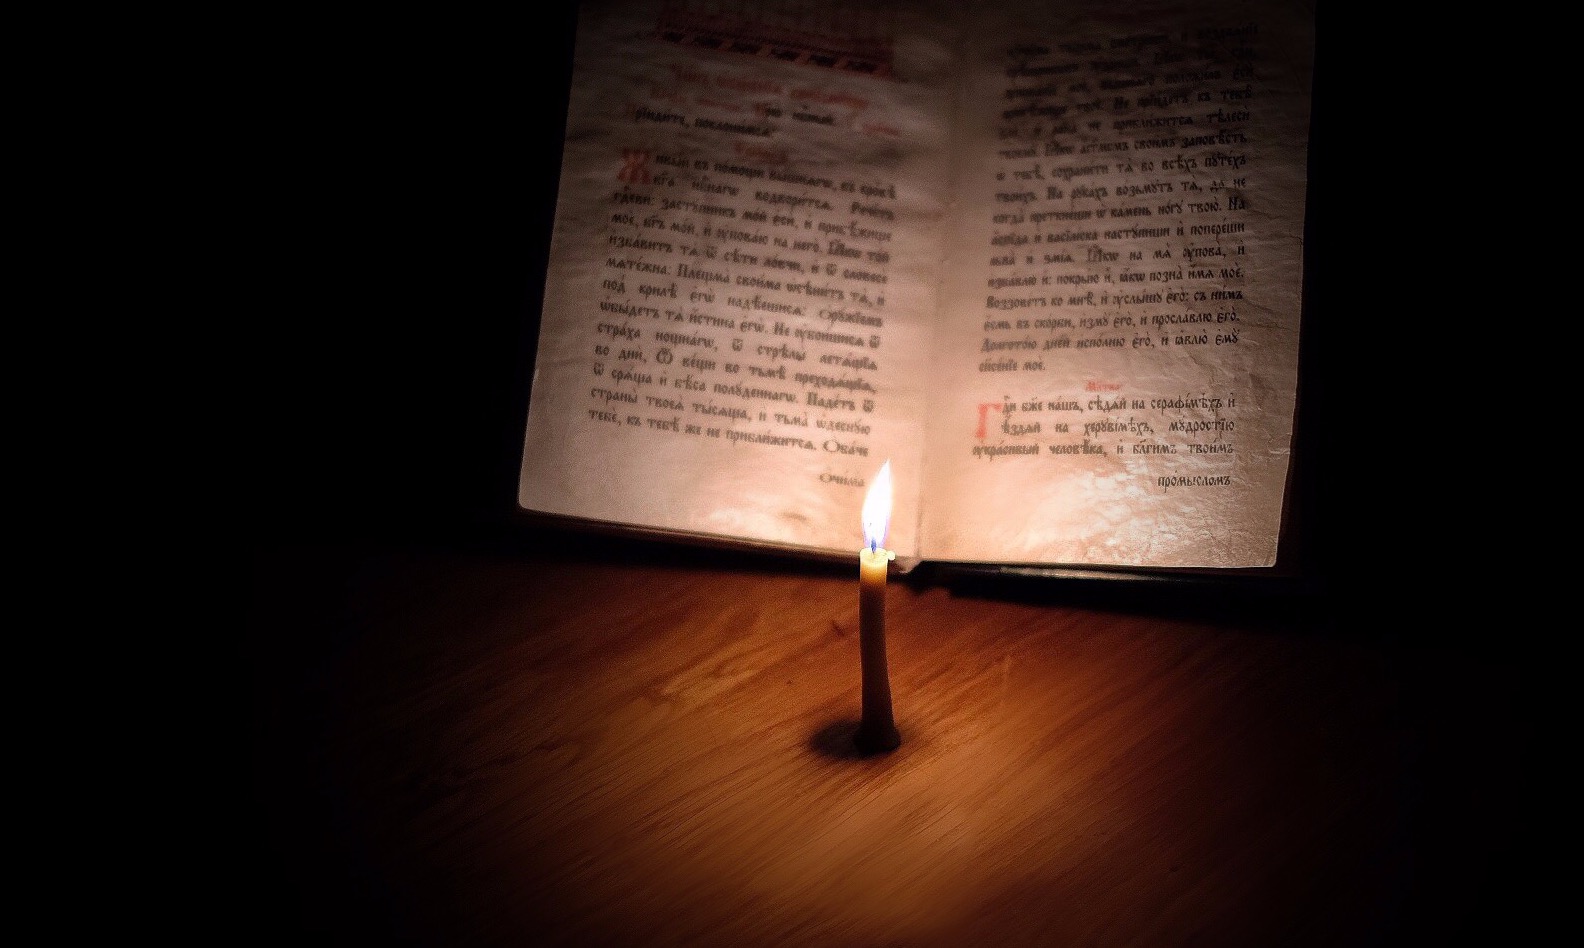 прїиди́те, поклони́мсѧ
Живы́й въ по́мощи вы́шнѧгѡ, въ кро́вѣ
бг҃а нбⷭ҇нагѡ водвори́тсѧ. Рече́тъ
гдⷭ҇еви: застꙋ́пникъ мо́й є҆сѝ, и҆ прибѣ́жище
моѐ, бг҃ъ мо́й, и҆ ᲂу҆пова́ю на него̀. Ꙗ҆́кѡ то́й
и҆зба́витъ тѧ̀ ѿ сѣ́ти ло́вчи, и҆ ѿ словесѐ
мѧте́жна: Плещма̀ свои́ма ѡ҆сѣни́тъ тѧ̀, и҆
под̾ крилѣ̑ є҆гѡ̀ надѣ́ешисѧ: Ѻ҆рꙋ́жїемъ
ѡ҆бы́детъ тѧ̀ и҆́стина є҆гѡ̀. Не ᲂу҆бои́шисѧ ѿ
стра́ха нощна́гѡ, ѿ стрѣлы̀ летѧ́щїѧ
во днѝ, Ѿ ве́щи во тьмѣ̀ преходѧ́щїѧ,
ѿ срѧ́ща и҆ бѣ́са полꙋ́деннагѡ. Паде́тъ ѿ
страны̀ твоеѧ̀ ты́сѧща, и҆ тьма̀ ѡ҆деснꙋ́ю
тебє̀, къ тебѣ́ же не прибли́житсѧ. Ѻ҆ба́че
Ѻ҆чи́ма
тво́й. Не прїи́детъ къ тебѣ̀
и҆ ра́на не прибли́житсѧ тѣлесѝ
Ꙗ҆́кѡ а҆́гг҃лѡмъ свои̑мъ заповѣ́сть
ѡ҆ тебѣ̀, сохрани́ти тѧ̀ во всѣ́хъ пꙋте́хъ
твои́хъ. На рꙋка́хъ во́змꙋтъ тѧ̀, да не
когда̀ преткне́ши ѡ҆ ка́мень но́гꙋ твою̀. На
а҆́спїда и҆ васїлі́ска настꙋ́пиши и҆ попере́ши
льва̀ и҆ ѕмі́ѧ. Ꙗ҆́кѡ на мѧ̀ ᲂу҆пова̀, и҆
и҆зба́влю и҆̀: покры́ю и҆̀, ꙗ҆́кѡ позна̀ и҆́мѧ моѐ.
Воззове́тъ ко мнѣ̀, и҆ ᲂу҆слы́шꙋ є҆го̀: съ ни́мъ
є҆́смь въ ско́рби, и҆змꙋ̀ є҆го̀, и҆ просла́влю є҆го̀.
Долгото́ю дні́й и҆спо́лню є҆го̀, и҆ ꙗ҆влю̀ є҆мꙋ̀
сп҃се́нїе моѐ.
Мл҃тва
Гдⷭ҇и бж҃е на́шъ, сѣдѧ́й на серафі́мѣхъ и҆
ѣ҆здѧ́й на херꙋві́мѣхъ, мꙋ́дростїю
ᲂу҆краси́вый человѣ́ка, и҆ бл҃ги́мъ твои́мъ
про́мысломъ